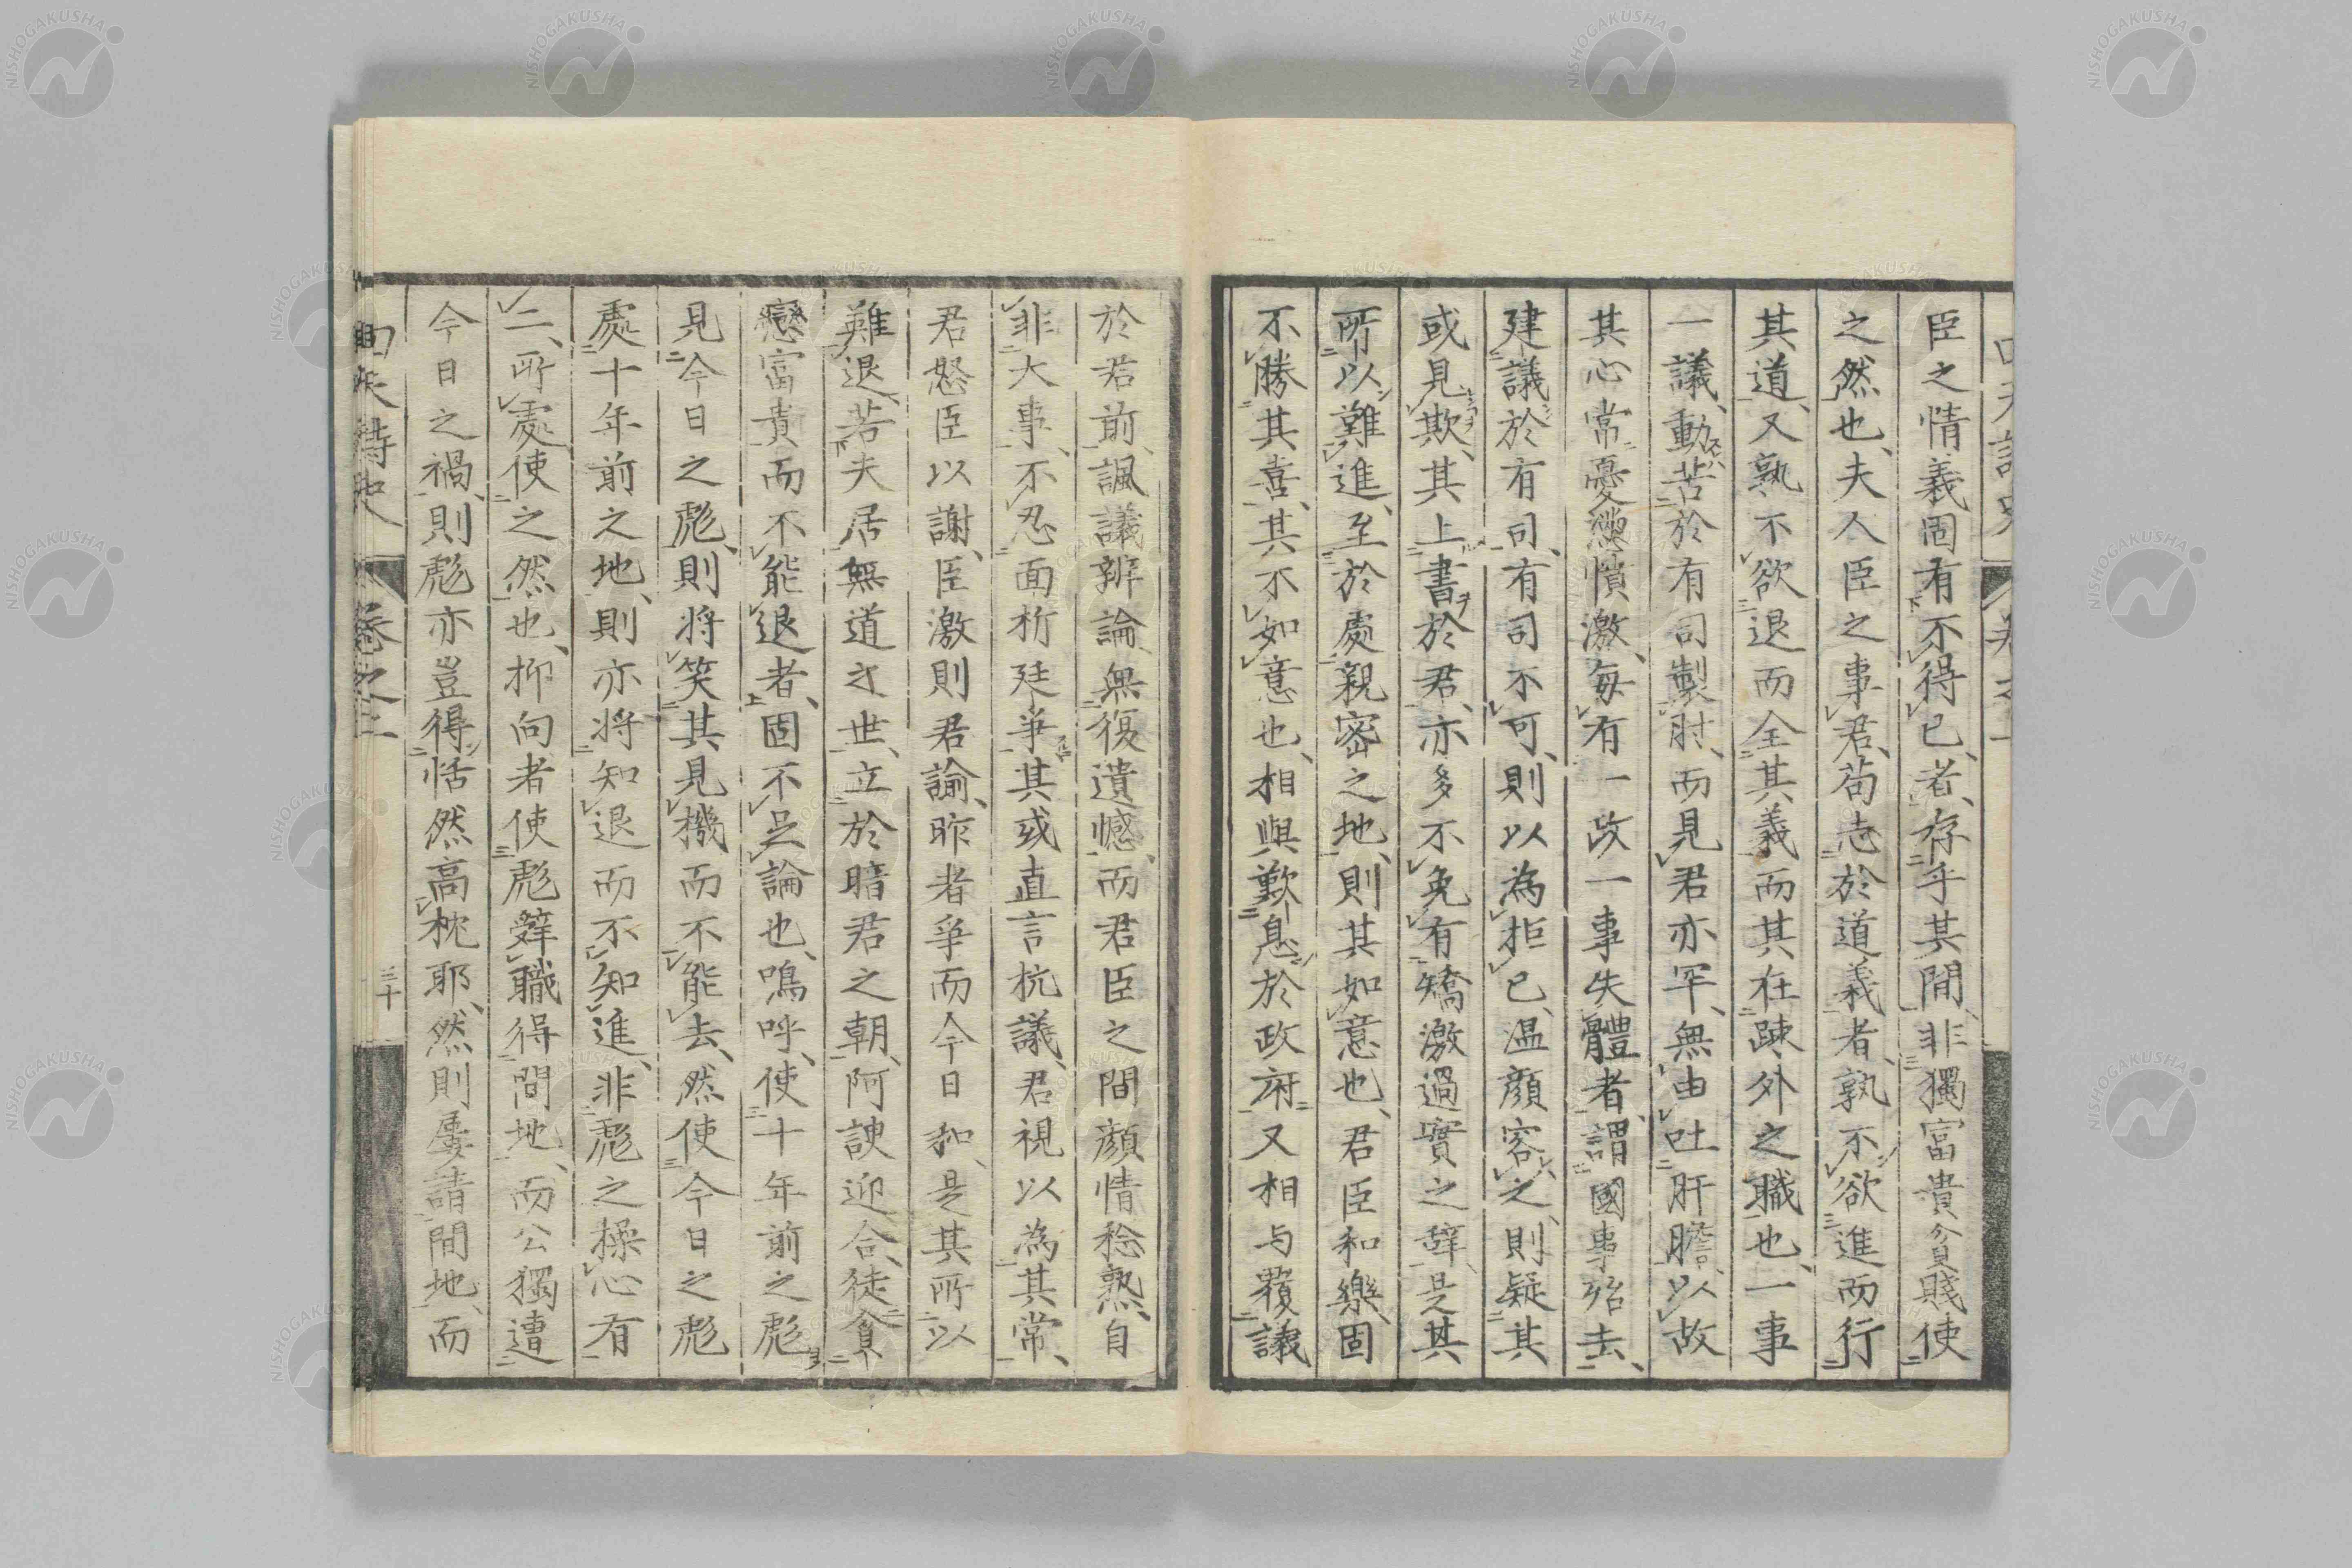 臣之情義固有不得已者存乎其間非獨富貴貧賤使
之然也夫人臣之事君苟志於道義者孰不欲進而行
其道又孰不欲退而全其義而其在疎外之職也一事
一議動苦於有司製肘而見君亦罕無由吐肝膽以故
其心常憂懣憤激每有一政一事失體者謂國事殆去
建議於有司有司不可則以為拒已温顔容之則疑其
或見欺其上書於君亦多不免有矯激過實之辞是其
所以難進至於處親密之地則其如意也君臣和樂固
不勝其喜其不如意也相與歎息於政府又相与覆議
於君前諷議辨論無復遺憾而君臣之間顔情稔熟自
非大事不忍面折廷爭其或直言抗議君視以為其常
君怒臣以謝臣激則君諭昨者爭而今日和是其所以
難退若夫居無道之世立於暗君之朝阿諛迎合徒貪
戀富貴而不能退者固不足論也嗚呼使十年前之彪
見今日之彪則将笑其見機而不能去然使今日之彪
處十年前之地則亦将知退而不知進非彪之操心有
二所處使之然也抑向者使彪辤職得間地而公獨遭
今日之禍則彪亦豈得恬然高枕耶然則屡請間地而
回天詩史 卷之上
三十
NISHOGAKUSHA